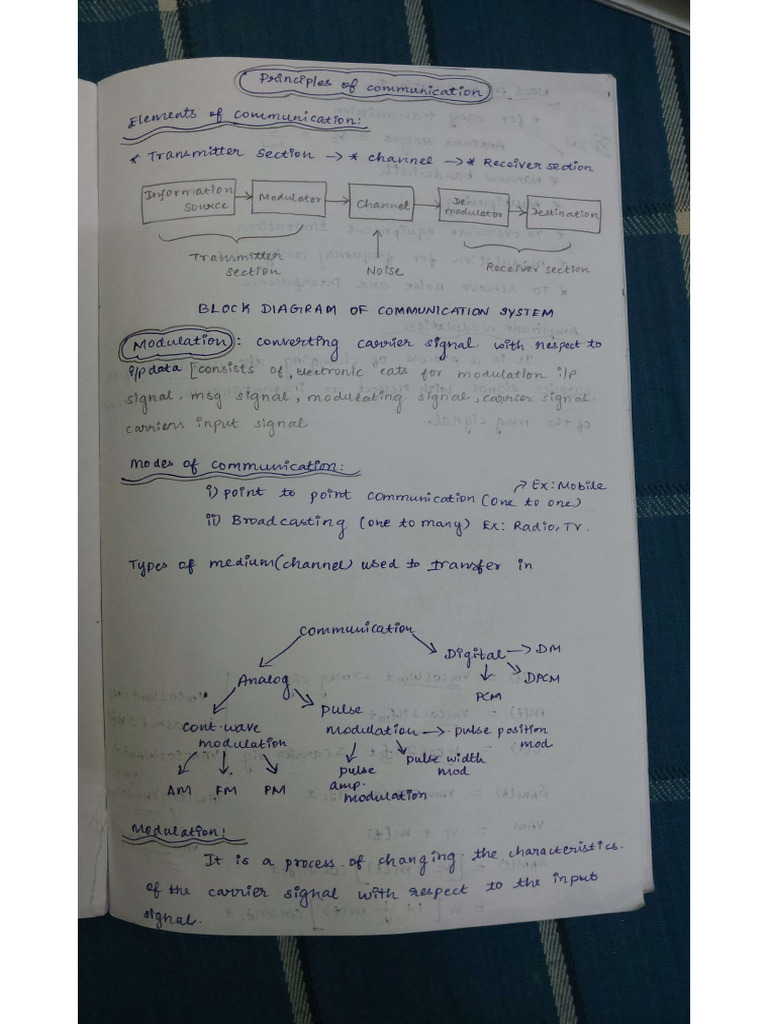 Principles of communication
Elements of communication:
* Transmitter section → * channel → * Receiver section
Information Source → Modulator → Channel → De-modulator → Destination
Transmitter section
Noise
Receiver section
BLOCK DIAGRAM OF COMMUNICATION SYSTEM
Modulation: converting carrier signal with respect to
i/p data [consists of electronic cats for modulation i/p
signal. msg signal, modulating signal, carrier signal.
carriers input signal
Modes of communication:
Ex: Mobile
i) point to point communication (one to one)
ii) Broadcasting (one to many) Ex: Radio, TV.
Types of medium (channel) used to transfer in
communication
Digital → DM
DPCM
PCM
Analog
pulse
modulation → pulse position
mod
cont-wave
modulation
pulse width
mod
pulse
amp.
modulation
AM FM PM
Modulation:
It is a process of changing the characteristics
of the carrier signal with respect to the input
signal.